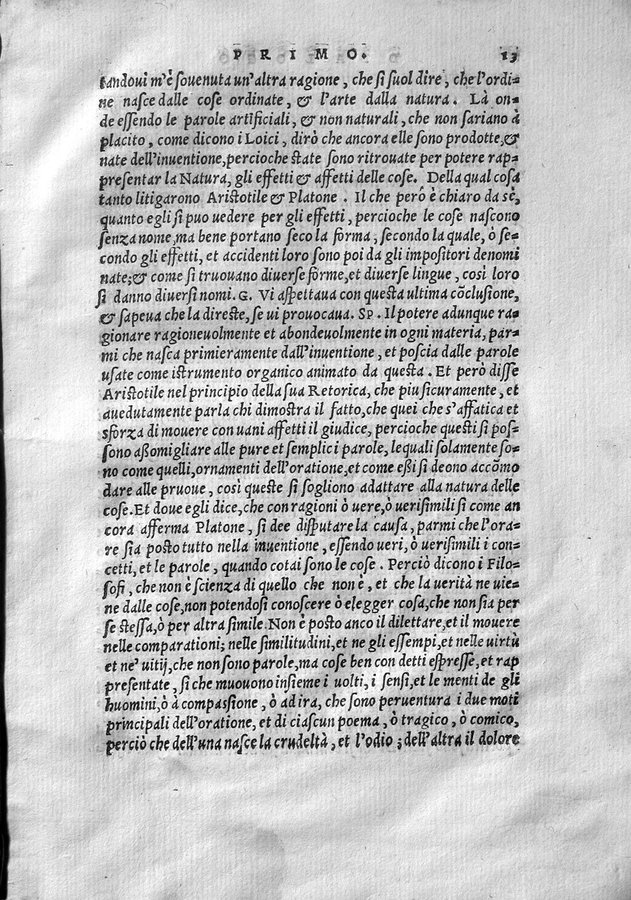 PRIMO. 13
tandoui m'è souenuta un'altra ragione, che si suol dire, che l'ordi=
ne nasce dalle cose ordinate, & l'arte dalla natura. Là on=
de essendo le parole artificiali, & non naturali, che non sariano à
placito, come dicono i Loici, dirò che ancora elle sono prodotte,&
nate dell'inuentione,percioche state sono ritrouate per potere rap=
presentar la Natura, gli effetti & affetti delle cose. Della qual cosa
tanto litigarono Aristotile & Platone. Il che però è chiaro da sè,
quanto egli si puo uedere per gli effetti, percioche le cose nascono
senza nome,ma bene portano seco la forma, secondo la quale, ò se=
condo gli effetti, et accidenti loro sono poi da gli impositori denomi
nate;& come si truouano diuerse forme,et diuerse lingue, così loro
si danno diuersi nomi. G. Vi aspettaua con questa ultima cōclusione,
& sapeua che la direste, se ui prouocaua. SP. Il potere adunque ra=
gionare ragioneuolmente et abondeuolmente in ogni materia, par=
mi che nasca primieramente dall'inuentione, et poscia dalle parole
usate come istrumento organico animato da questa. Et però disse
Aristotile nel principio della sua Retorica, che piu sicuramente, et
auedutamente parla chi dimostra il fatto,che quei che s'affatica et
sforza di mouere con uani affetti il giudice, percioche questi si pos=
sono assomigliare alle pure et semplici parole, lequali solamente so=
no come quelli,ornamenti dell'oratione,et come essi si deono accōmo
dare alle pruoue, così queste si sogliono adattare alla natura delle
cose.Et doue egli dice,che con ragioni ò uere,ò uerisimili si come an
cora afferma Platone, si dee disputare la causa, parmi che l'ora=
re sia posto tutto nella inuentione, essendo ueri, ò uerisimili i con=
cetti, et le parole, quando cotai sono le cose. Perciò dicono i Filo=
sofi, che non è scienza di quello che non è, et che la uerità ne uie=
ne dalle cose,non potendosi conoscere ò elegger cosa,che non sia per
se stessa,ò per altra simile Non è posto anco il dilettare,et il mouere
nelle comparationi; nelle similitudini,et ne gli essempi,et nelle uirtù
et ne' uitij,che non sono parole,ma cose ben con detti espresse,et rap
presentate, si che muouono insieme i uolti, i sensi,et le menti de gli
huomini,ò à compassione, ò ad ira, che sono peruentura i due moti
principali dell'oratione, et di ciascun poema, ò tragico, ò comico,
perciò che dell'una nasce la crudeltà, et l'odio ; dell'altra il dolore